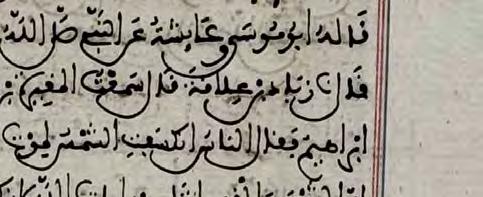 قاله ابو موسى وعايشة عن النبي صلى الله
قال نا زياد بن علاقة قال سمعت المغيرة بن
ابراهيم فقال الناس انكسفت الشمس لموت